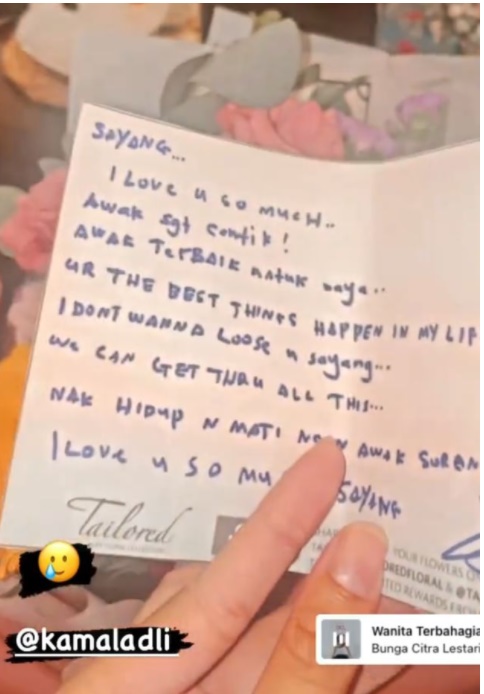 SAYANG...
I Love u so mucH..
Awak sgt cantik!
AWAK TerBAIK untuk saya..
UR THE BEST THINGS HAPPEN IN MY LIF
I DONT WANNA LOOSE u sayang...
We CAN GET THRU ALL THIS...
NAK HIDUP N MATI AWAK
I Love u SO MU SAYANG
Tailored
YOUR FLOWERS
OREDFLORAL & @TA
TED REWARDS
@kamaladli
Wanita Terbahagia
Bunga Citra Lestari